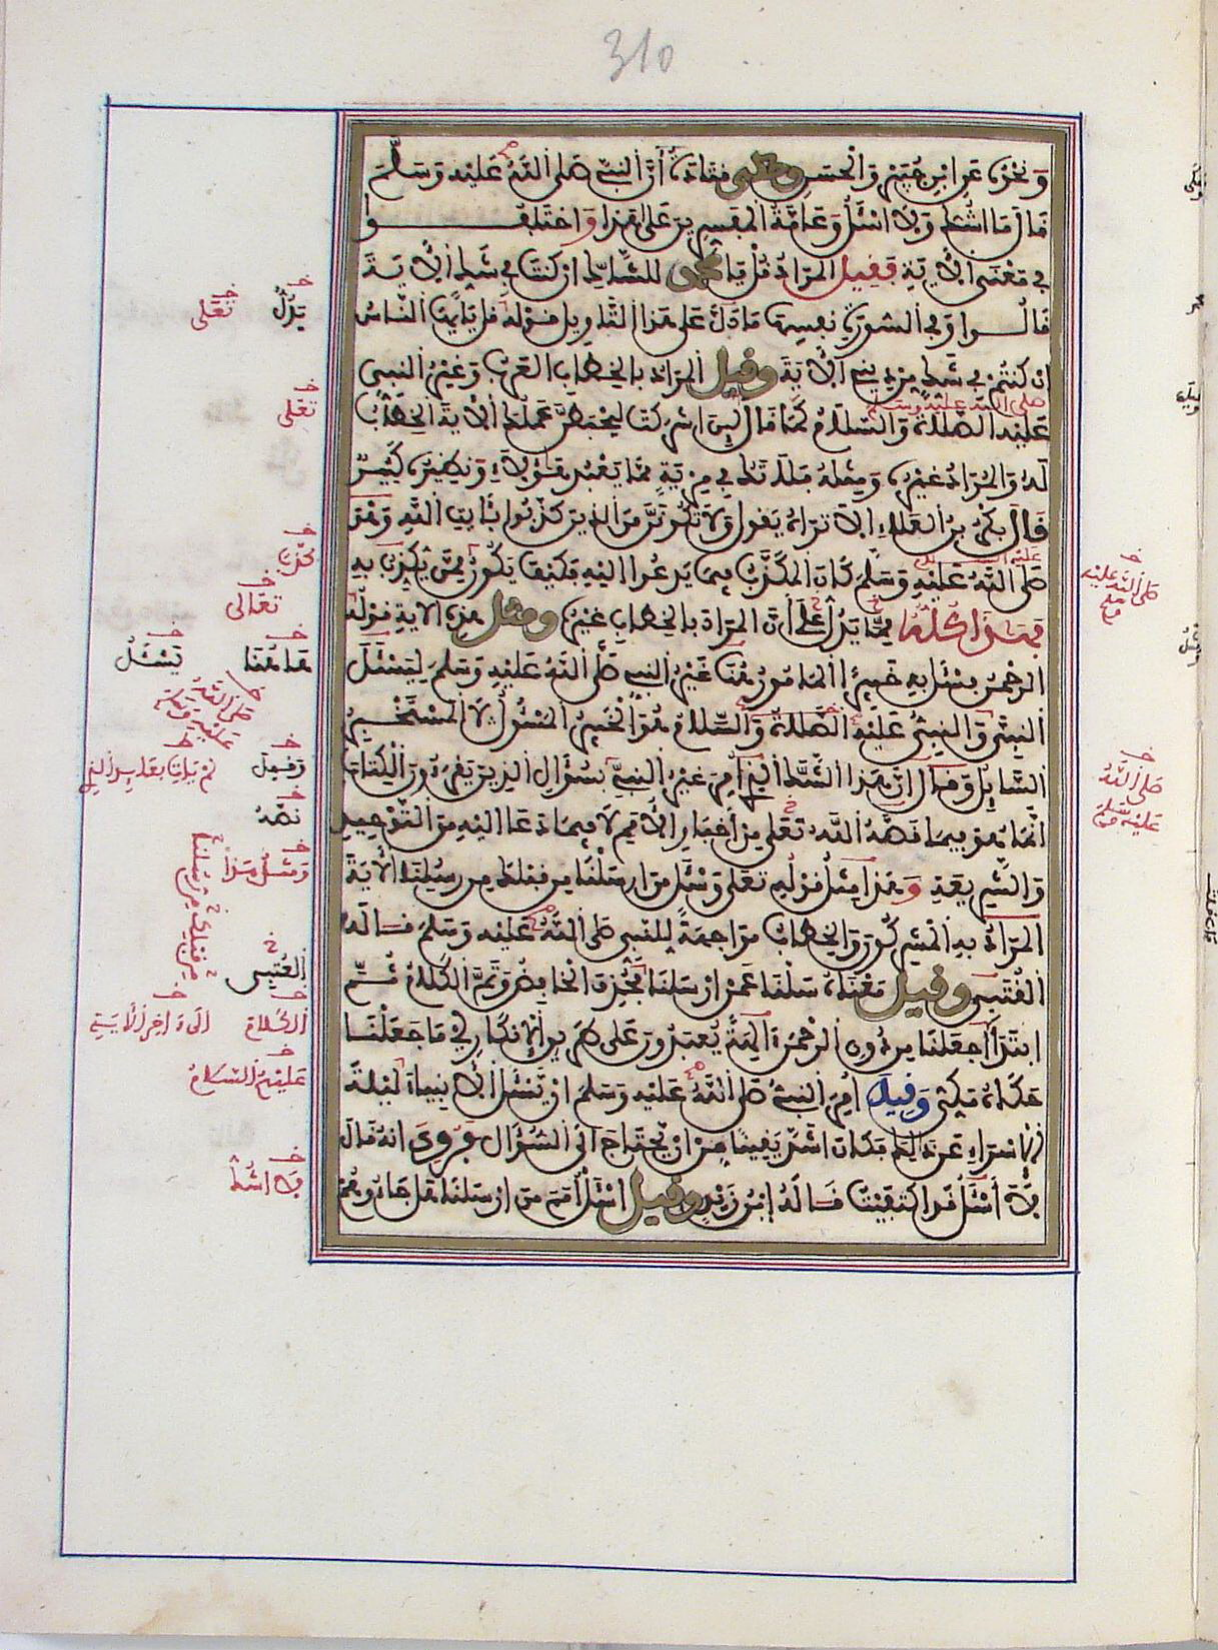 310
وَنَحْوُهُ عَنِ ابْنِ جُبَيْرٍ وَالْحَسَنِ وحكى قتادة أَنَّ النَّبِيَّ صَلَّى اللَّهُ عَلَيْهِ وَسَلَّمَ
قَالَ مَا اشُكُّ وَلَا اسْئَلُ وَعَامَّةُ الْمُفَسِّرِينَ عَلَى هٰذَا وَاخْتَلَفُوا
فِي مَعْنَى الْآيَةِ فَقِيلَ الْمُرَادُ قُلْ يَا مُحَمَّدُ لِلشَّاكِّ إِنْ كُنْتَ فِي شَكٍّ الْآيَةَ
قَالُوا وَفِي السُّورَةِ نَفْسِهَا مَا دَلَّ عَلَى هٰذَا التَّأْوِيلِ قَوْلُهُ قُلْ يَا أَيُّهَا النَّاسُ
إِنْ كُنْتُمْ فِي شَكٍّ مِنْ دِينِي الْآيَةَ وقيل الْمُرَادُ بِالْخِطَابِ الْعَرَبُ وَغَيْرُ النَّبِيِّ
صلى الله عليه وسلم
عَلَيْهِ الصَّلَاةُ وَالسَّلَامُ كَمَا قَالَ لَئِنْ اشْرَكْتَ لَيَحْبَطَنَّ عَمَلُكَ الْآيَةَ الْخِطَابُ
لَهُ وَالْمُرَادُ غَيْرُهُ وَمِثْلُهُ فَلَا تَكُ فِي مِرْيَةٍ مِمَّا يَعْبُدُ هٰؤُلَاءِ وَنَظِيرُهُ كَثِيرٌ
قَالَ بَكْرُ بْنُ الْعَلَاءِ الَا تَرَاهُ يَقُولُ وَلَا تَكُونَنَّ مِنَ الَّذِينَ كَذَّبُوا بِآيَاتِ اللَّهِ وَهُوَ
صَلَّى اللَّهُ عَلَيْهِ وَسَلَّمَ كَانَ الْمُكَذَّبَ فِيمَا يَدْعُوا إِلَيْهِ فَكَيْفَ يَكُونُ مِمَّنْ يُكَذِّبُ بِهِ
فَهٰذَا كُلُّهُ مِمَّا يَدُلُّ عَلَى أَنَّ الْمُرَادَ بِالْخِطَابِ غَيْرُهُ ومثل هٰذِهِ الْآيَةِ قَوْلُهُ
الرَّحْمٰنُ فَسْئَلْ بِهِ خَبِيرًا الْمَأْمُورُ هُنَا غَيْرُ النَّبِيِّ صَلَّى اللَّهُ عَلَيْهِ وَسَلَّمَ لِيَسْئَلَ
النَّبِيَّ وَالنَّبِيُّ عَلَيْهِ الصَّلَاةُ وَالسَّلَامُ هُوَ الْخَبِيرُ الْمَسْئُولُ لَا الْمُسْتَخْبِرُ
السَّائِلُ وَقَالَ إِنَّ هٰذَا الشَّكَّ الَّذِي أُمِرَ غَيْرُ النَّبِيِّ بِسُؤَالِ الَّذِينَ يَقْرَءُونَ الْكِتَابَ
إِنَّمَا هُوَ فِيمَا قَصَّهُ اللَّهُ تَعَلَى مِنْ أَخْبَارِ الْأُمَمِ لَا فِيمَا دَعَا إِلَيْهِ مِنَ التَّوْحِيدِ
وَالشَّرِيعَةِ وَهٰذَا مِثْلُ قَوْلِهِ تَعَلَى وَسْئَلْ مَنْ أَرْسَلْنَا مِنْ قَبْلِكَ مِنْ رُسُلِنَا الْآيَةَ
الْمُرَادُ بِهِ الْمُشْرِكُونَ وَالْخِطَابُ مُوَاجَهَةً لِلنَّبِيِّ صَلَّى اللَّهُ عَلَيْهِ وَسَلَّمَ قَالَهُ
الْقُتَبِيُّ وقيل مَعْنَاهُ سَلْنَا عَمَّنْ ارْسَلْنَا فَحُذِفَ الْخَافِضُ وَتَمَّ الْكَلَامُ ثُمَّ
ابْتَدَأَ أَجَعَلْنَا مِنْ دُونِ الرَّحْمٰنِ آلِهَةً يُعْبَدُونَ عَلَى طَرِيقِ الْإِنْكَارِ أَيْ مَا جَعَلْنَا
حَكَاهُ مَكِّيٌّ وَقِيلَ أُمِرَ النَّبِيُّ صَلَّى اللَّهُ عَلَيْهِ وَسَلَّمَ انْ يَسْئَلَ الْأَنْبِيَاءَ لَيْلَةَ
الْإِسْرَاءِ عَنْ ذَلِكَ فَكَانَ اشَدَّ يَقِينًا مِنْ انْ يَحْتَاجَ الَى السُّؤَالِ فَرُوِيَ انَّهُ قَالَ
لَا أَسْئَلُ قَدِ اكْتَفَيْتُ قَالَهُ إِبْنُ زَيْدٍ وقيل اسْئَلْ أُمَمَ مَنْ ارْسَلْنَا هَلْ جَاءُوهُمْ
يَدُلُّ تَعَلَى
تَعَلَى
كَذَّبَ
تَعَالَى
هَاهُنَا يَسْئَلُ
صَلَّى اللَّهُ عَلَيْهِ وَسَلَّمَ
وَقِيلَ
قَصَّهُ
وَمِثْلُ هٰذَا
الْقُتَبِي
الْكَلَامُ إِلَى ءَاخِرِ الْآيَةِ
عَلَيْهِمُ السَّلَامُ
مَا اشُكُّ
صَلَّى اللَّهُ عَلَيْهِ
صَلَّى اللَّهُ عَلَيْهِ وَسَلَّمَ